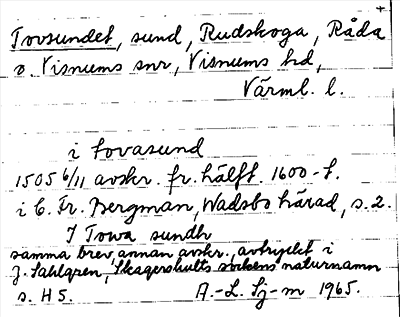 Tovsundet, sund, Rudskoga, Råda
o. Visnums snr, Visnums hd,
Värml. l.
i tovasund
1505 6/11 avskr. fr. hälft. 1600-t.
i C. Fr. Bergman, Wadsbo härad, s. 2.
I Towa sundh
samma brev, annan avskr., avtryckt i
J. Sahlgren, Skagershults sockens naturnamn
s. H5. A.-L. Sj-m 1965.